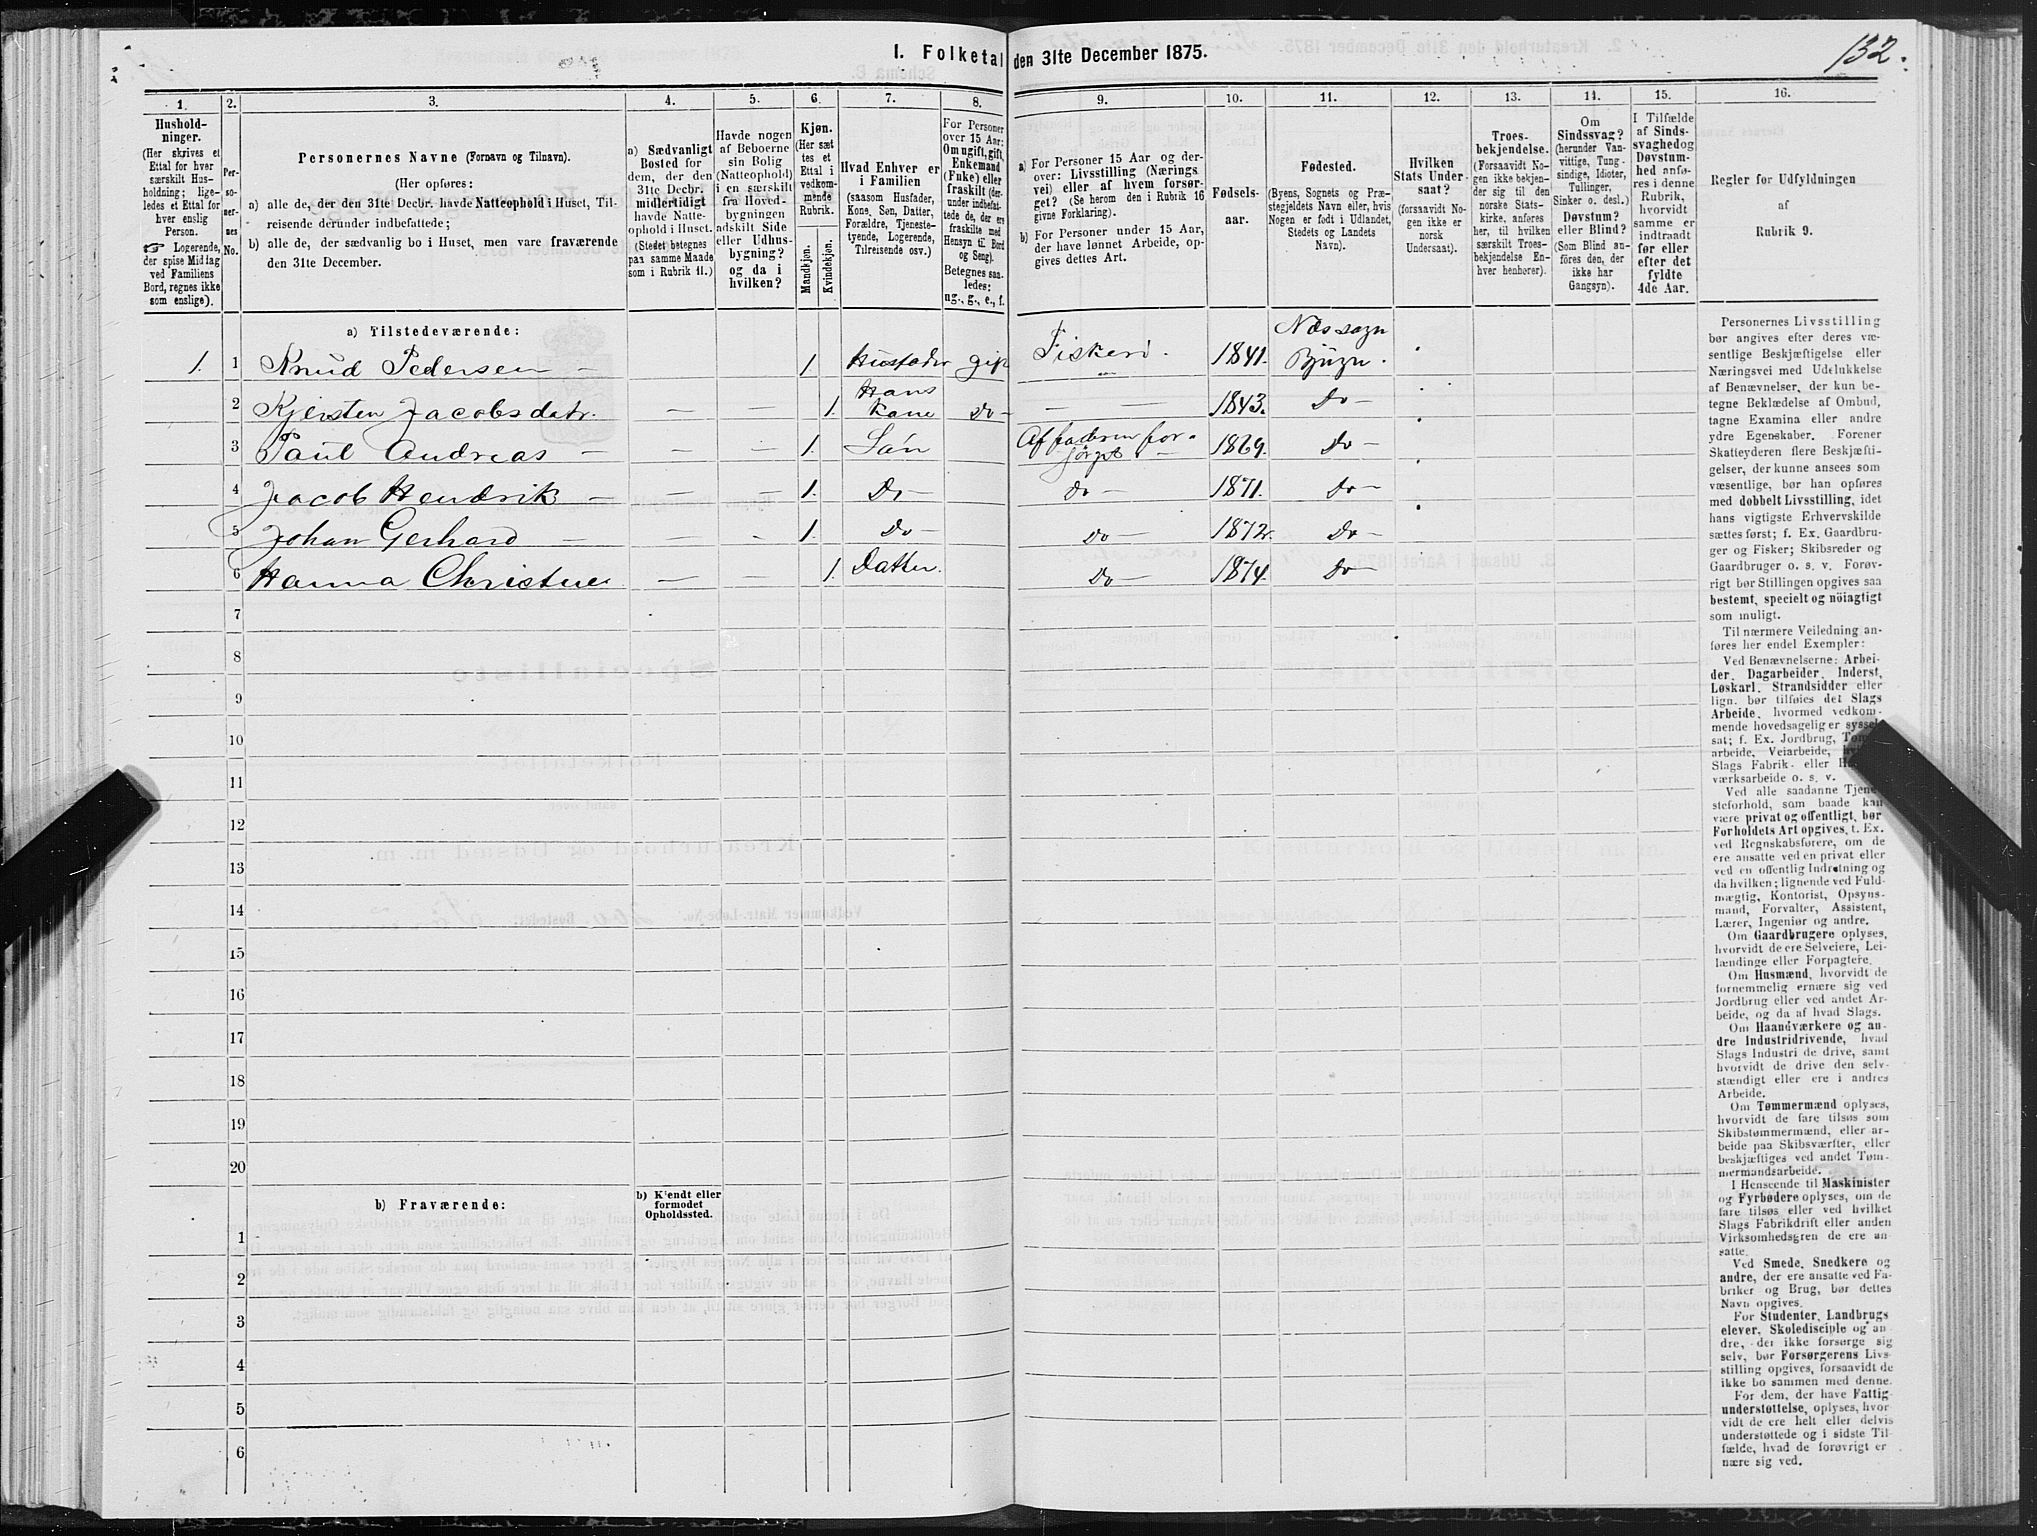 I. Folketal den 31te December 1875.
132.
1. 2. 3. 4. 5. 6. 7. 8. 9. 10. 11. 12. 13. 14. 15. 16.
Hushold-
ninger.
(Her skrives et
Ettal for hver
særskilt Hus-
holdning; lige-
ledes et Ettal for
hver enslig
Person.
☞ Logerende,
der spise Middag
ved Familiens
Bord, regnes ikke
som enslige).
Per-
so-
ner-
nes
No.
Personernes Navne (Fornavn og Tilnavn).
(Her opføres:
a) alle de, der den 31te Decbr. havde Natteophold i Huset, Til-
reisende derunder indbefattede;
b) alle de, der sædvanlig bo i Huset, men vare fraværende
den 31te December.
a) Sædvanligt
Bosted for
dem, der den
31te Decbr.
midlertidigt
havde Natte-
ophold i Huset.
(Stedet betegnes
paa samme Maade
som i Rubrik 11.)
Havde nogen
af Beboerne
sin Bolig
(Natteophold)
i en særskilt
fra Hoved-
bygningen
adskilt Side
eller Udhus-
bygning?
og da i
hvilken?
Kjøn.
(Her sæt
tes et
Ettal i
vedkom-
mende
Rubrik.
Mandkjøn.
Kvindekjøn.
Hvad Enhver er
i Familien
(saasom Husfader,
Kone, Søn, Datter,
Forældre, Tjeneste-
tyende, Logerende,
Tilreisende osv.)
For Personer
over 15 Aar:
Om ugift, gift,
Enkemand
(Fuke) eller
fraskilt (der-
under indbefat-
tede de, der ere
fraskilte med
Hensyn til Bord
og Seng).
Betegnes saa-
ledes:
ug., g., e., f.
a) For Personer 15 Aar og der-
over: Livsstilling (Nærings
vei) eller af hvem forsør-
get? (Se herom den i Rubrik 16
givne Forklaring).
b) For Personer under 15 Aar,
der have lønnet Arbeide, op-
gives dettes Art.
Fødsels-
aar.
Fødested.
(Byens, Sognets og Præ-
stegjeldets Navn eller, hvis
Nogen er født i Udlandet,
Stedets og Landets
Navn).
Hvilken
Stats Under-
saat?
(forsaavidt No-
gen ikke er
norsk
Undersaat).
Troes-
bekjendelse.
(Forsaavidt No-
gen ikke bekjen-
der sig til den
norske Stats-
kirke, anføres
her, til hvilken
særskilt Troes-
bekjendelse En-
hver henhører).
Om
Sindssvag?
(herunder Van-
vittige, Tung-
sindige, Idioter,
Tullinger,
Sinker o. desl.)
Døvstum?
eller Blind?
(Som Blind an-
føres den, der
ikke har
Gangsyn).
I Tilfælde
af Sinds-
svaghed og
Døvstum-
hed anfø-
res i denne
Rubrik,
hvorvidt
samme er
indtraadt
før eller
efter det
fyldte
4de Aar.
Regler for Udfyldningen
af
Rubrik 9.
a) Tilstedeværende:
1. 1 Knud Pedersen – 1. Husfader gift Fiskeri. 1841. Næs sogn Bjugn.
2 Kjersten Jacobsdatr. — — 1. Hans Kone Do — — — 1843. Do —
3 Paul Andreas — — — 1. Søn Af faderen forsørget — 1869. Do —
4 Jacob Hendrik — — — 1. Do — Do — 1871. Do —
5 Johan Gerhard — — — 1. Do — Do — 1872. Do —
6 Hanna Christine — — 1. Datter. Do — 1874. Do —
7
8
9
10
11
12
13
14
15
16
17
18
19
20
b) Fraværende:
b) Kjendt eller
formodet
Opholdssted.
1
2
3
4
5
6
Personernes Livsstilling
bør angives efter deres væ-
sentlige Beskjæftigelse eller
Næringsvei med Udelukkelse
af Benævnelser, der kun be-
tegne Beklædelse af Ombud,
tagne Examina eller andre
ydre Egenskaber. Forener
Skatteyderen flere Beskjæfti-
gelser, der kunne ansees som
væsentlige, bør han opføres
med dobbelt Livsstilling, idet
hans vigtigste Erhvervskilde
sættes først; f. Ex. Gaardbru-
ger og Fisker; Skibsreder og
Gaardbruger o. s. v. Forøv-
rigt bør Stillingen opgives saa
bestemt, specielt og nöiagtigt
som muligt.
Til nærmere Veiledning an-
føres her endel Exempler:
Ved Benævnelserne: Arbei-
der, Dagarbeider, Inderst,
Løskarl, Strandsidder eller
lign. bør tilføies det Slags
Arbeide, hvormed vedkom-
mende hovedsagelig er syssel-
sat; f. Ex. Jordbrug, Tømmer-
arbeide, Veiarbeide,
Slags Fabrik- eller
værksarbeide o. s. v.
Ved alle saadanne Tjene-
steforhold, som baade kan
være privat og offentligt, bør
Forholdets Art opgives, t. Ex.
ved Regnskabsførere, om de
ere ansatte ved en privat eller
ved en offentlig Indretning og
da hvilken; lignende ved Fuld-
mægtig, Kontorist, Opsyns-
mand, Forvalter, Assistent,
Lærer, Ingeniør og andre.
Om Gaardbrugere oplyses,
hvorvidt de ere Selveiere, Lei-
lændinge eller Forpagtere.
Om Husmænd, hvorvidt de
fornemmelig ernære sig ved
Jordbrug eller ved andet Ar-
beide, og da af hvad Slags.
Om Haandværkere og an-
dre Industridrivende, hvad
Slags Industri de drive, samt
hvorvidt de drive den selv-
stændigt eller ere i andres
Arbeide.
Om Tømmermænd oplyses,
hvorvidt de fare tilsøs som
Skibstømmermænd, eller ar-
beide paa Skibsværfter, eller
beskjæftiges ved andet Tøm-
mermandsarbeide.
I Henseende til Maskinister
og Fyrbødere oplyses, om de
fare tilsøs eller ved hvilket
Slags Fabrikdrift eller anden
Virksomhedsgren de ere an-
satte.
Ved Smede, Snedkere og
andre, der ere ansatte ved Fa-
briker og Brug, bør dettes
Navn opgives.
For Studenter, Landbrugs
elever, Skoledisciple og an-
dre, der ikke forsørge sig
selv, bør Forsørgerens Livs-
stilling opgives, forsaavidt de
ikke bo sammen med denne.
For dem, der have Fattig-
understøttelse, oplyses, hvor-
vidt de ere helt eller delvis
understøttede og i sidste Til-
fælde, hvad de forøvrigt er
nære sig ved.